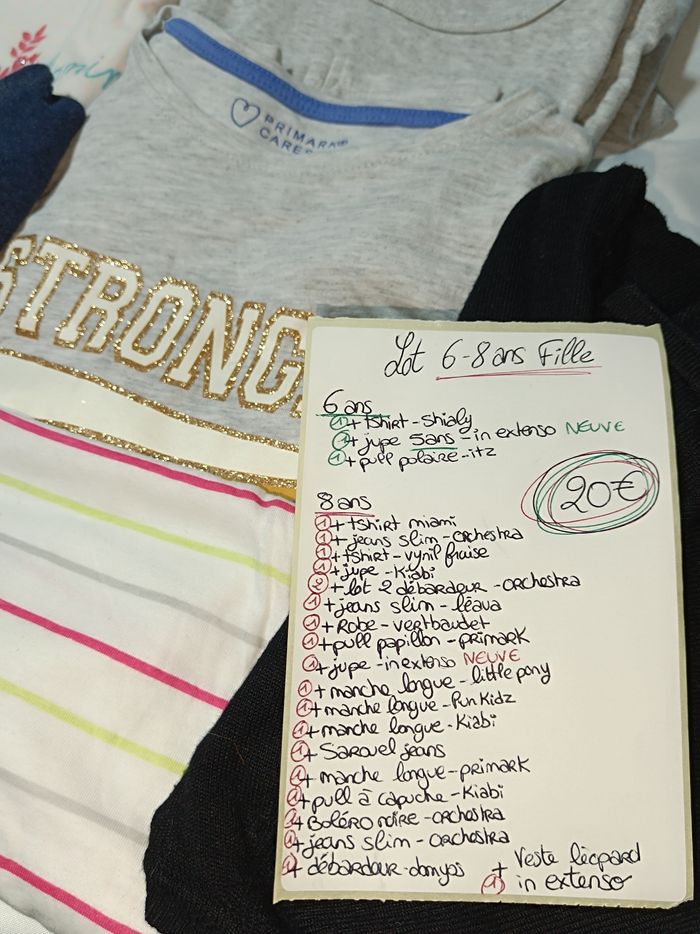 PRIMARK®
CARES
STRONG
Lot 6-8 ans Fille
6 ans
1 + tshirt - Shialy
1 + jupe 5ans - in extenso NEUVE
1 + pull polaire - itz
20€
8 ans
1 + tshirt miami
1 + jeans slim - orchestra
1 + tshirt - vynil fraise
1 + jupe - Kiabi
2 + lot 2 débardeur - ORCHESTRA
1 + jeans slim - léava
1 + Robe - vertbaudet
1 + pull papillon - primark
1 + jupe - in extenso NEUVE
1 + manche longue - little pony
1 + manche longue - Fun Kidz
1 + manche longue - Kiabi
1 + Sarouel jeans
1 + manche longue - primark
1 + pull à capuche - Kiabi
1 + Boléro noire - orchestra
1 + jeans slim - orchestra
1 + débardeur - domyos
+ Veste léopard
1 in extenso